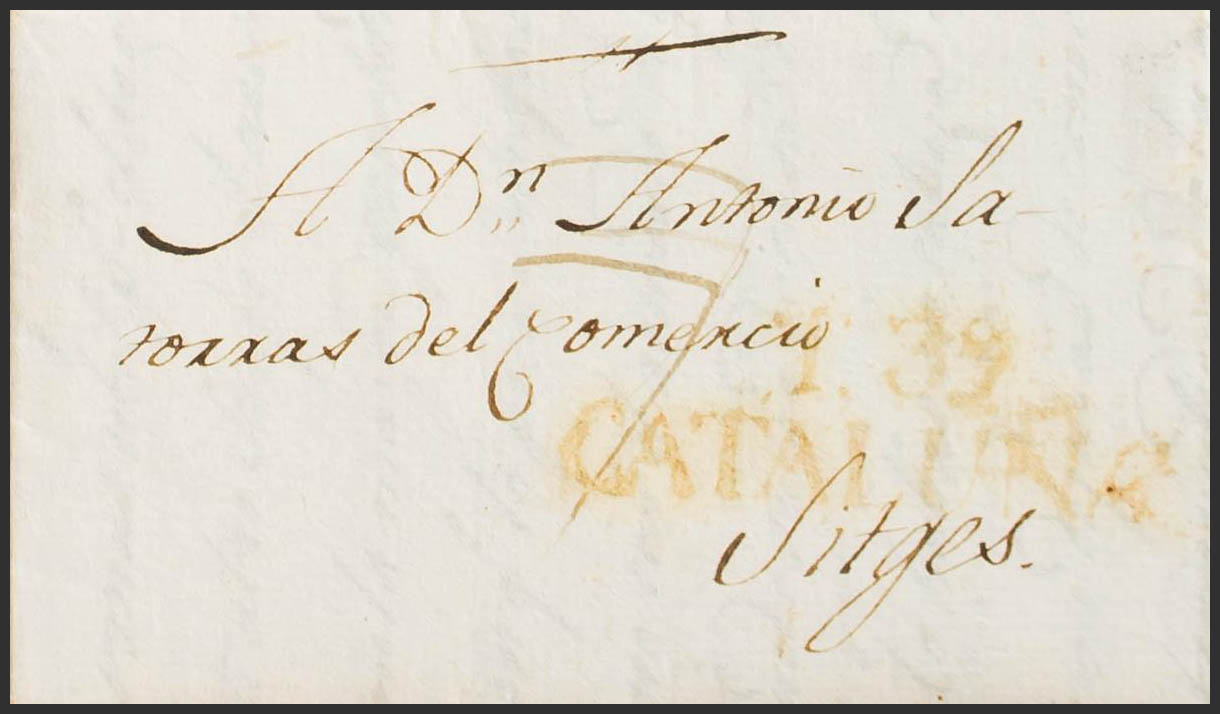 A Dⁿ Antonio Sa-
torras del Comercio
Y. 39
CATALUÑA
Sitges.